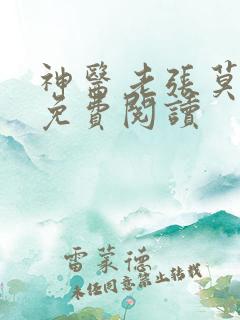 神醫老張莫
免費閱讀
雷萊德
未經同意禁止轉載